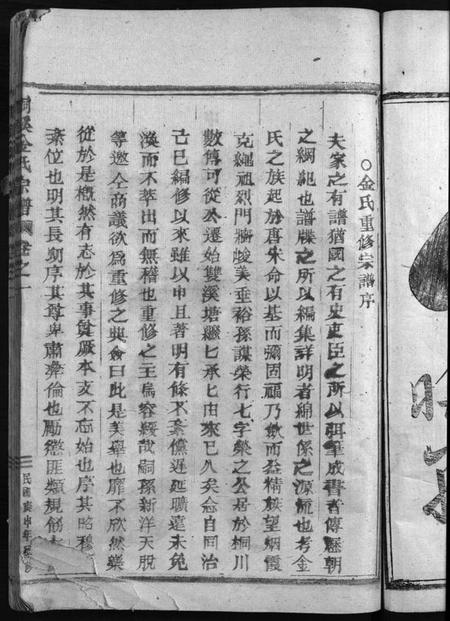 ○金氏重修宗譜序
夫家之有譜猶國之有史史臣之所以珥筆成書者傳歷朝
之綱紀也譜牒之所以編集詳明者綿世係之源流也考金
氏之族起於唐朱命以基而彌固顧乃
族望烟霞
克繩祖烈門牆峻美垂裕孫謀榮行七字榮之公居於桐川
數傳可從於遷始雙溪塘繼七承七由來已久矣念自同治
己巳編修以來雖以申且著明有條不紊儻遲延曠遠未免
渙而不萃出而無稽也重修之主烏容緩哉嗣孫新洋天脫
等邀仝商議欲爲重修之典僉曰此是美舉也靡不欣然樂
從於是概然有志於其事貴厥本支不忘始也序其昭穆
紊位也明其長幼序其尊卑肅彝倫也勵懲匪類規飭
金氏宗譜
卷之一
民國庚申年